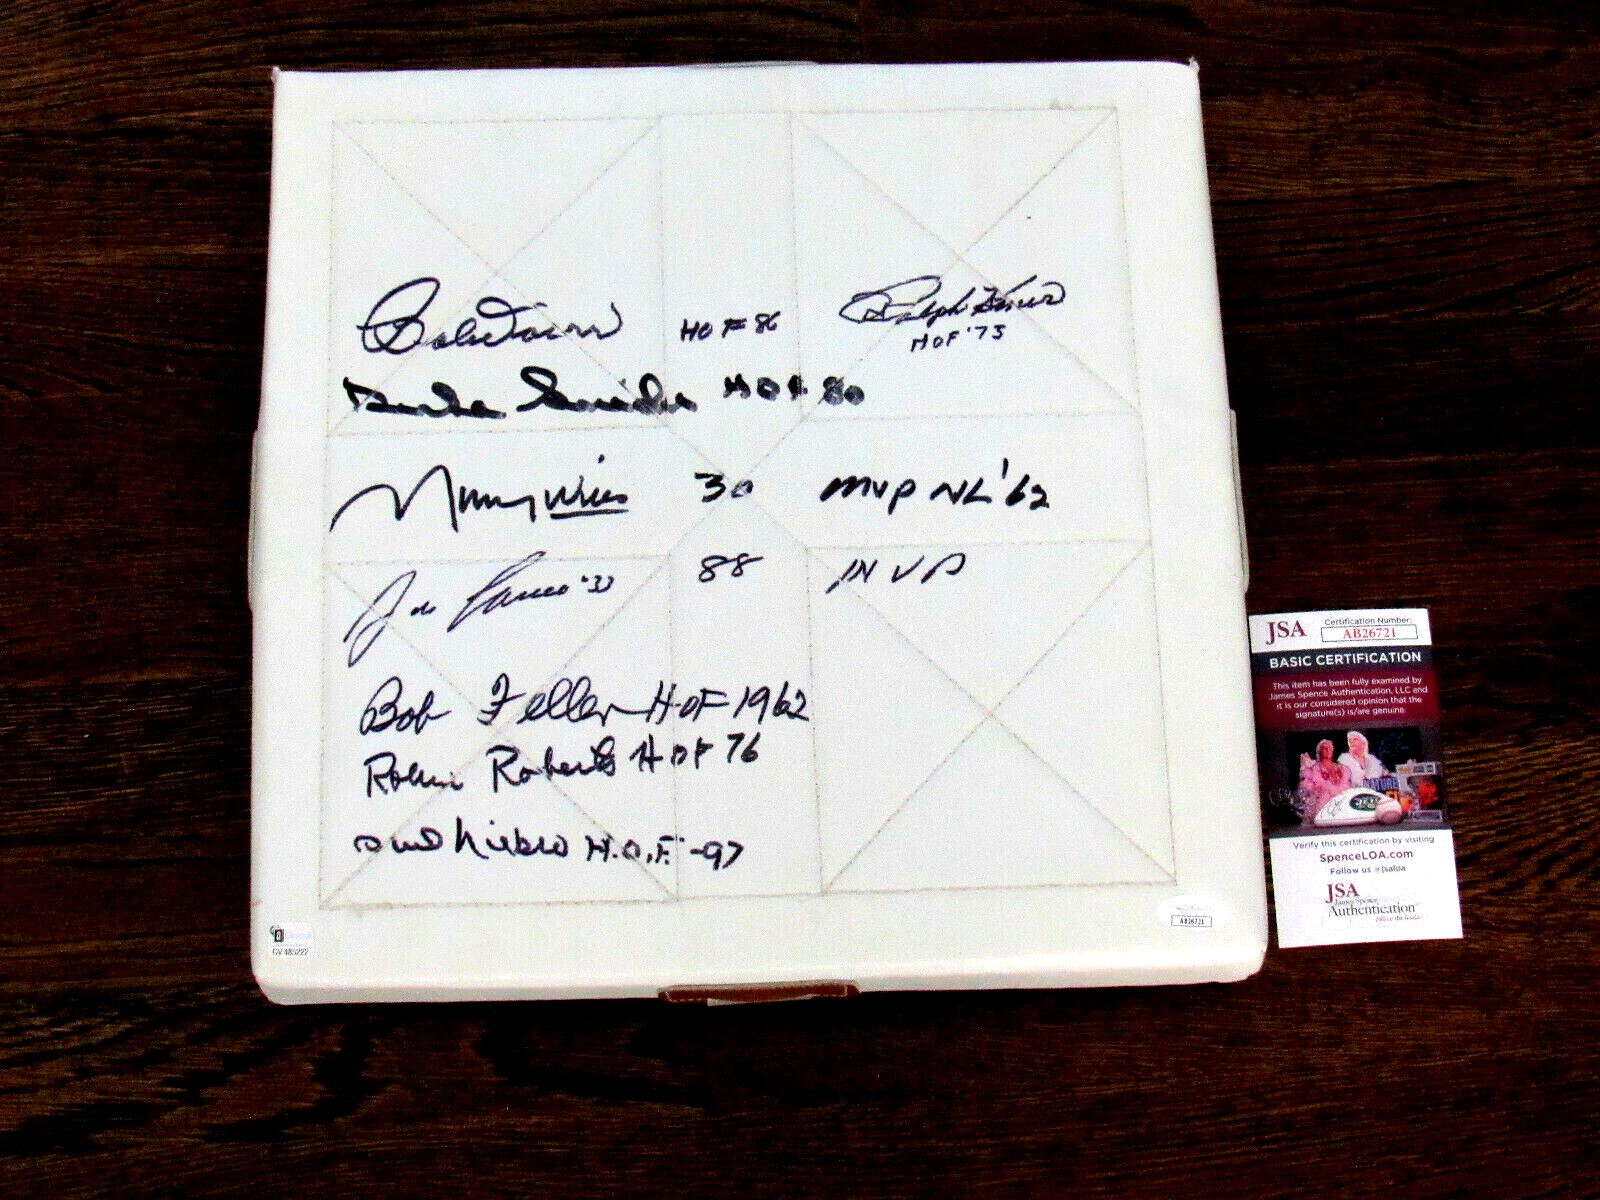 Bobby Doerr HOF 86
Ralph Kiner
HOF '75
Duke Snider HOF 80
Maury Wills 30 MVP NL '62
Jose Canseco '33 88 MVP
Bob Feller HOF 1962
Robin Roberts HOF 76
Phil Niekro H.O.F. -97
GV 485222
AB26721
JSA Certification Number:
AB26721
BASIC CERTIFICATION
This item has been fully examined by
James Spence Authentication, LLC and
it is our considered opinion that the
signature(s) is/are genuine.
Verify this certification by visiting
SpenceLOA.com
Follow us @jsaloa
JSA
James Spence
Authentication